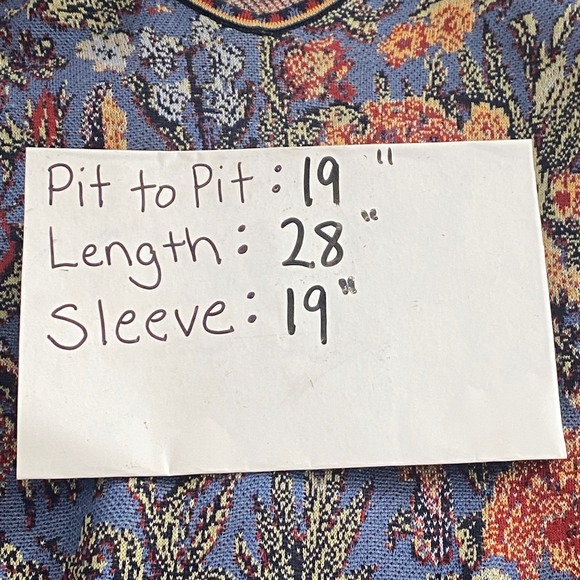 Pit to Pit: 19"
Length: 28"
Sleeve: 19"